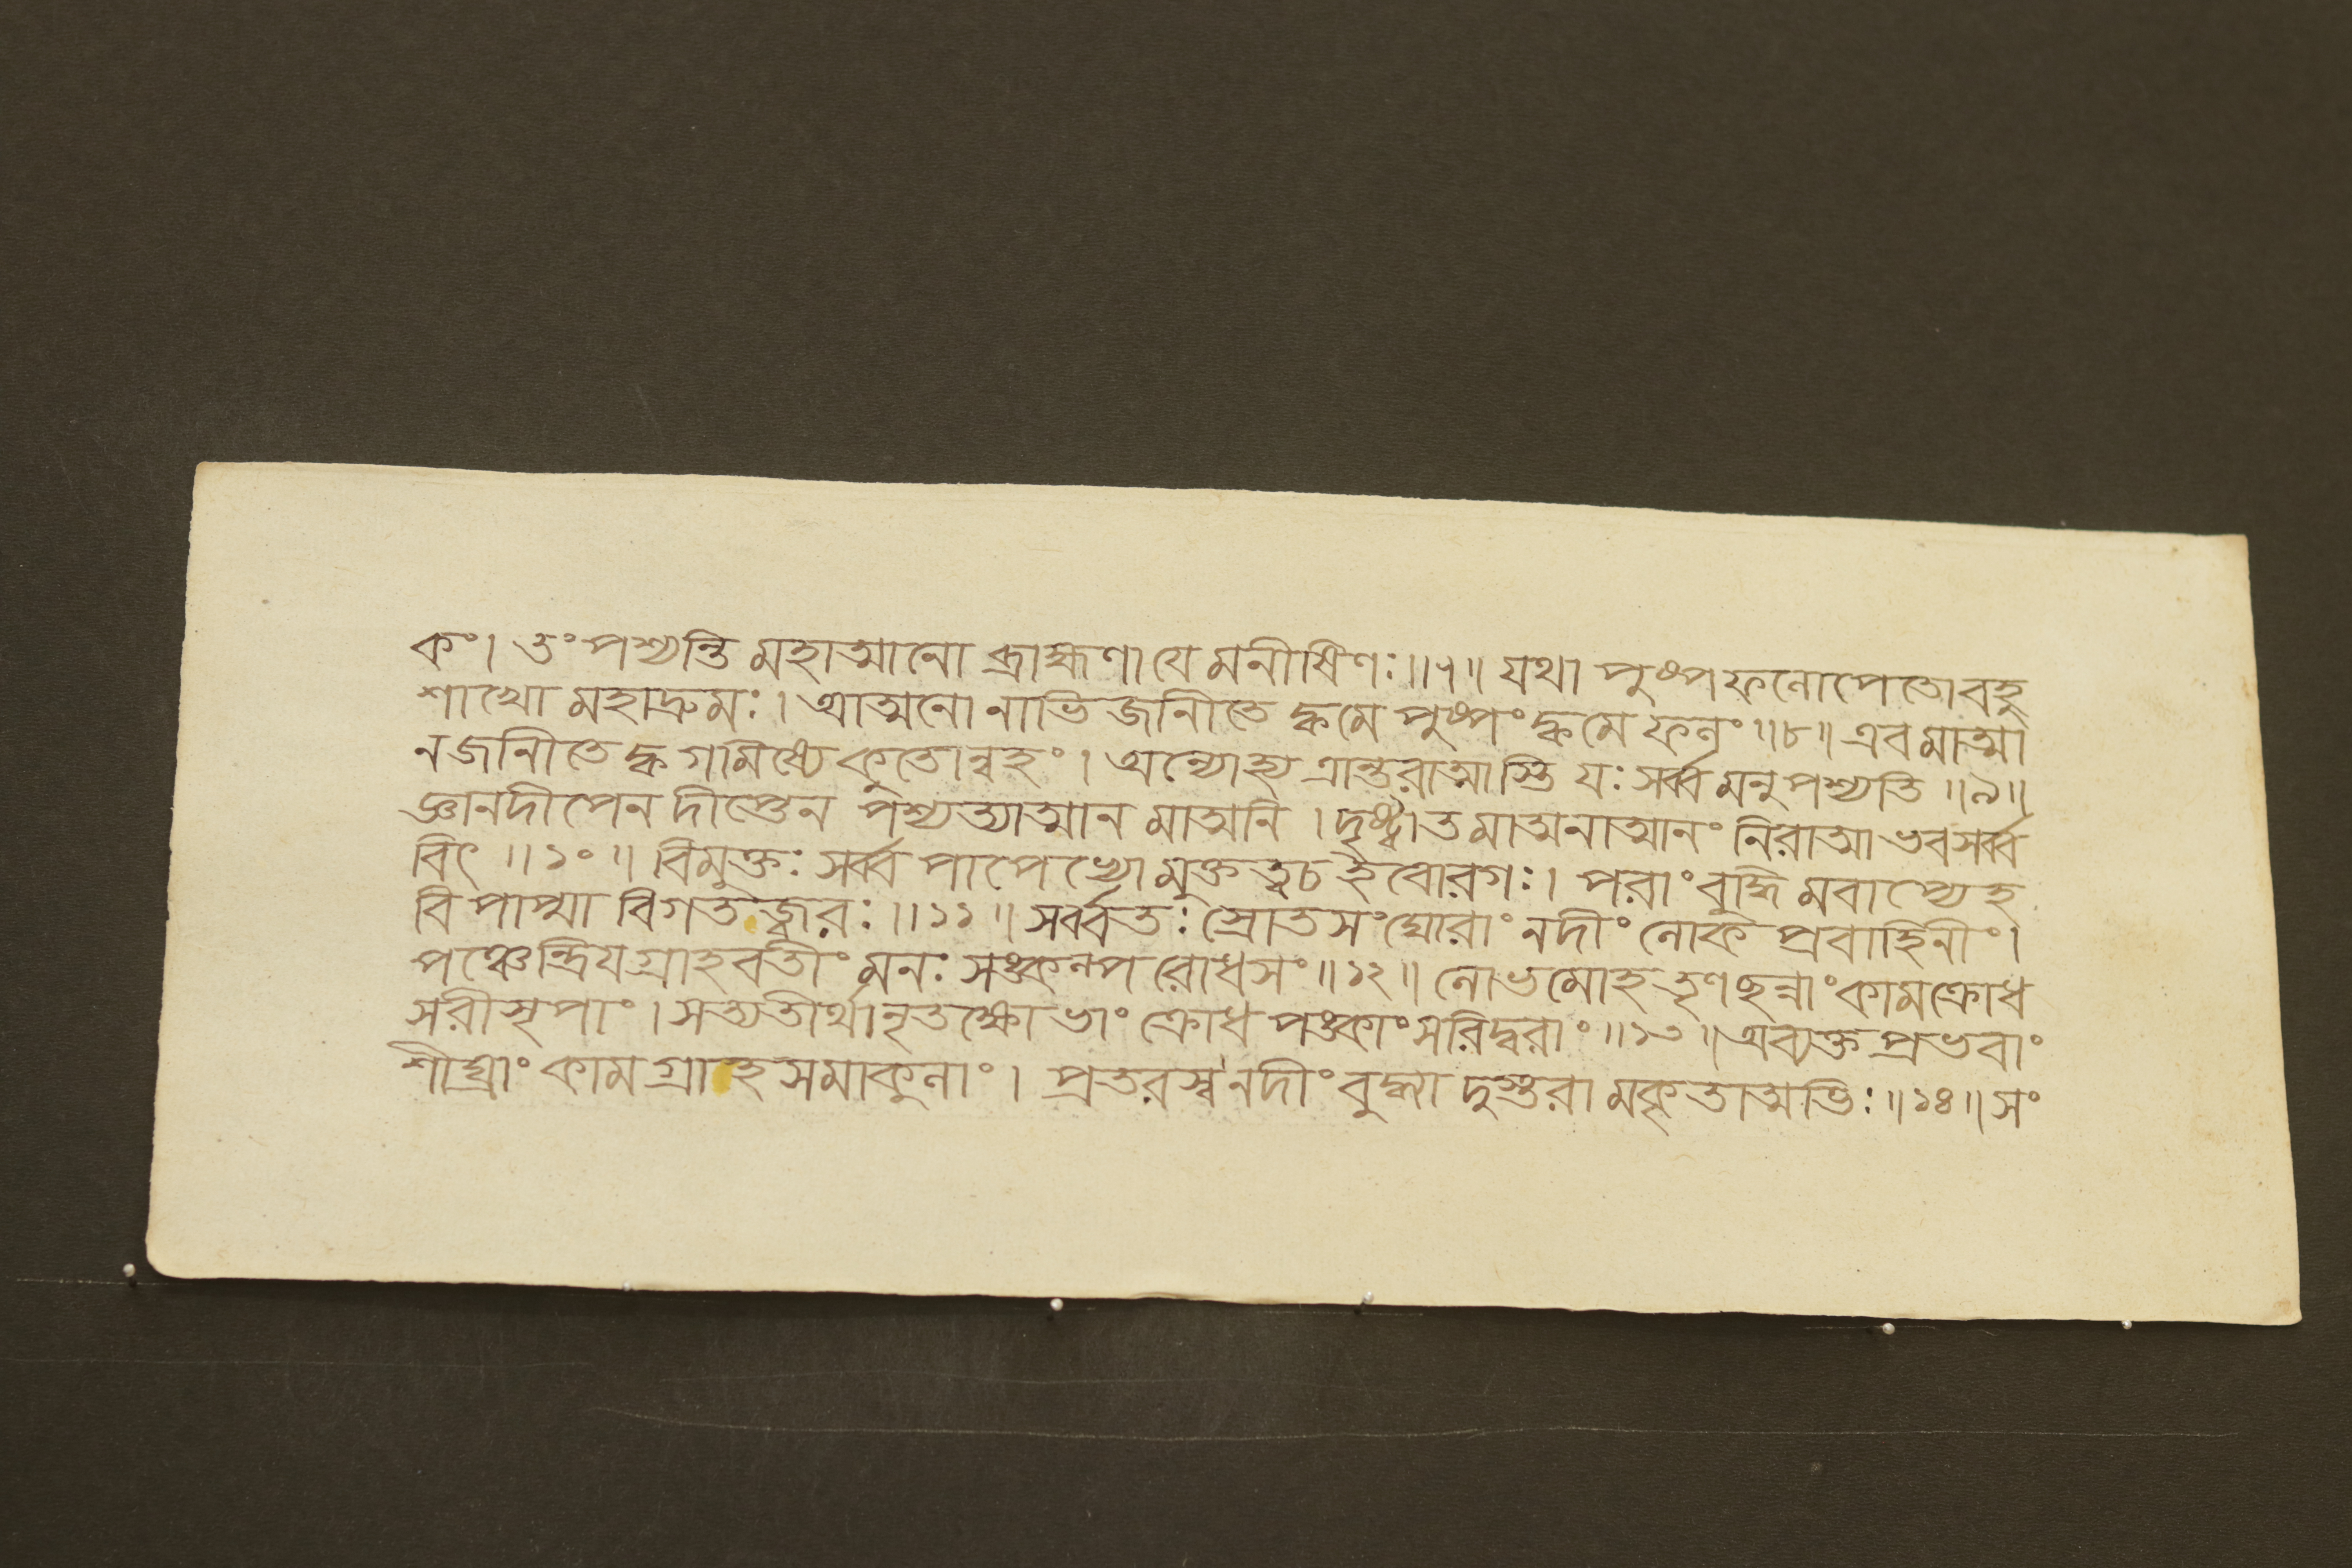 কং। তং পশ্যন্তি মহাত্মানো ব্রাহ্মণা যে মনীষিণঃ॥৭॥ যথা পুষ্পফলোপেতোবহু
শাখো মহাদ্রুমঃ। আত্মনো নাভিজানীতে ক্বমে পুষ্পং ক্বমে ফলং॥৮॥ এবমাত্মা
নজানীতে ক্ব গমিষ্যে কুতোন্বহং। অন্যোহ্যত্রান্তরাত্মাস্তি যঃ সর্ব্বমনুপশ্যতি॥৯॥
জ্ঞানদীপেন দীপ্তেন পশ্যত্যাত্মানমাত্মনি। দৃষ্ট্বাতমাত্মনাত্মানং নিরাত্মা ভবসর্ব্ব
বিৎ॥১০॥ বিমুক্তঃ সর্ব্বপাপেভ্যো মুক্তত্বচ ইবোরগঃ। পরাং বুদ্ধিমবাপ্যেহ
বিপাপ্মা বিগতজ্বরঃ॥১১॥ সর্ব্বতঃ স্রোতসং ঘোরাং নদীং লোকপ্রবাহিনীং।
পঞ্চেন্দ্রিয়গ্রাহবতীং মনঃ সঙ্কল্পরোধসং॥১২॥ লোভমোহতৃণছন্নাং কামক্রোধ
সরীসৃপাং। সত্যতীর্থানৃতক্ষোভাং ক্রোধপঙ্কাং সরিদ্বরাং॥১৩॥ অব্যক্তপ্রভবাং
শীঘ্রাং কামগ্রাহসমাকুলাং। প্রতরস্ব নদীং বুদ্ধ্যা দুস্তরামকৃতাত্মভিঃ॥১৪॥ সং